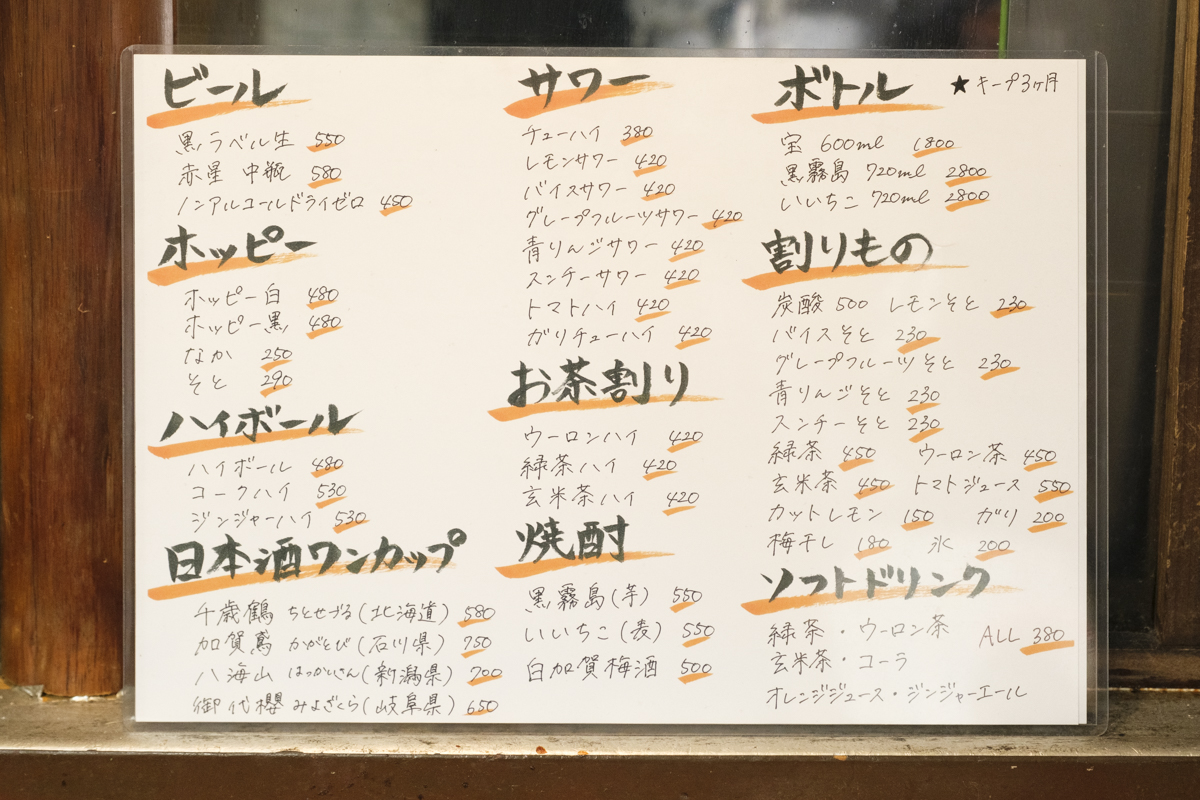 ビール
黒ラベル生 550
赤星 中瓶 580
ノンアルコールドライゼロ 450
ホッピー
ホッピー白 480
ホッピー黒 480
なか 250
そと 290
ハイボール
ハイボール 480
コークハイ 530
ジンジャーハイ 530
日本酒ワンカップ
千歳鶴 ちとせづる(北海道) 580
加賀鳶 かがとび(石川県) 750
八海山 はっかいさん(新潟県) 700
御代櫻 みよざくら(岐阜県) 650
サワー
チューハイ 380
レモンサワー 420
バイスサワー 420
グレープフルーツサワー 420
青りんごサワー 420
スンチーサワー 420
トマトハイ 420
ガリチューハイ 420
お茶割り
ウーロンハイ 420
緑茶ハイ 420
玄米茶ハイ 420
焼酎
黒霧島(芋) 550
いいちこ(麦) 550
白加賀梅酒 500
ボトル ★キープ3ヶ月
宝 600ml 1800
黒霧島 720ml 2800
いいちこ 720ml 2800
割りもの
炭酸 500 レモンそと 230
バイスそと 230
グレープフルーツそと 230
青りんごそと 230
スンチーそと 230
緑茶 450 ウーロン茶 450
玄米茶 450 トマトジュース 550
カットレモン 150 ガリ 200
梅干し 180 氷 200
ソフトドリンク
緑茶・ウーロン茶 ALL 380
玄米茶・コーラ
オレンジジュース・ジンジャーエール